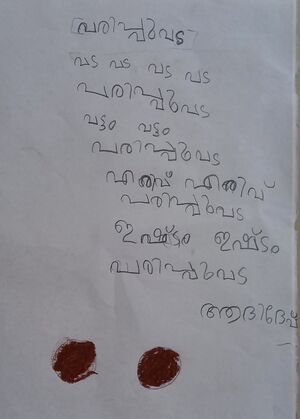 പരിപ്പുവട
വട വട വട വട
പരിപ്പുവട
വട്ടം വട്ടം
പരിപ്പുവട
എരിവ് എരിവ്
പരിപ്പുവട
ഇഷ്ടം ഇഷ്ടം
പരിപ്പുവട
ആദിദേവ്